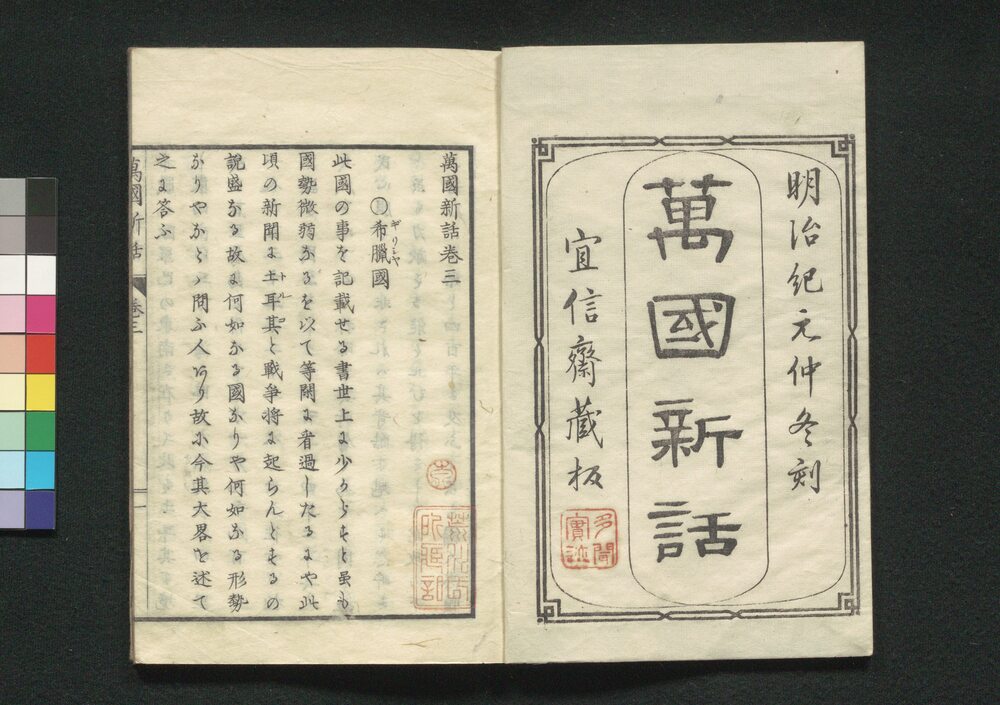 明治紀元仲冬刻
萬國新話
宜信齋蔵板
多聞
實迹
萬國新話巻三
○希臘國
ギリシヤ
此國の事を記載せる書世上に少からずと虽も
國勢微弱なるを以て等閑に看過したるにや此
頃の新聞に土耳其と戦争将に起らんとするの
トルコ
説盛なる故に何如なる國なりや何如なる形勢
なりやなど問ふ人あり故に今其大畧を述て
之に答ふ
萬國新話
巻三
一